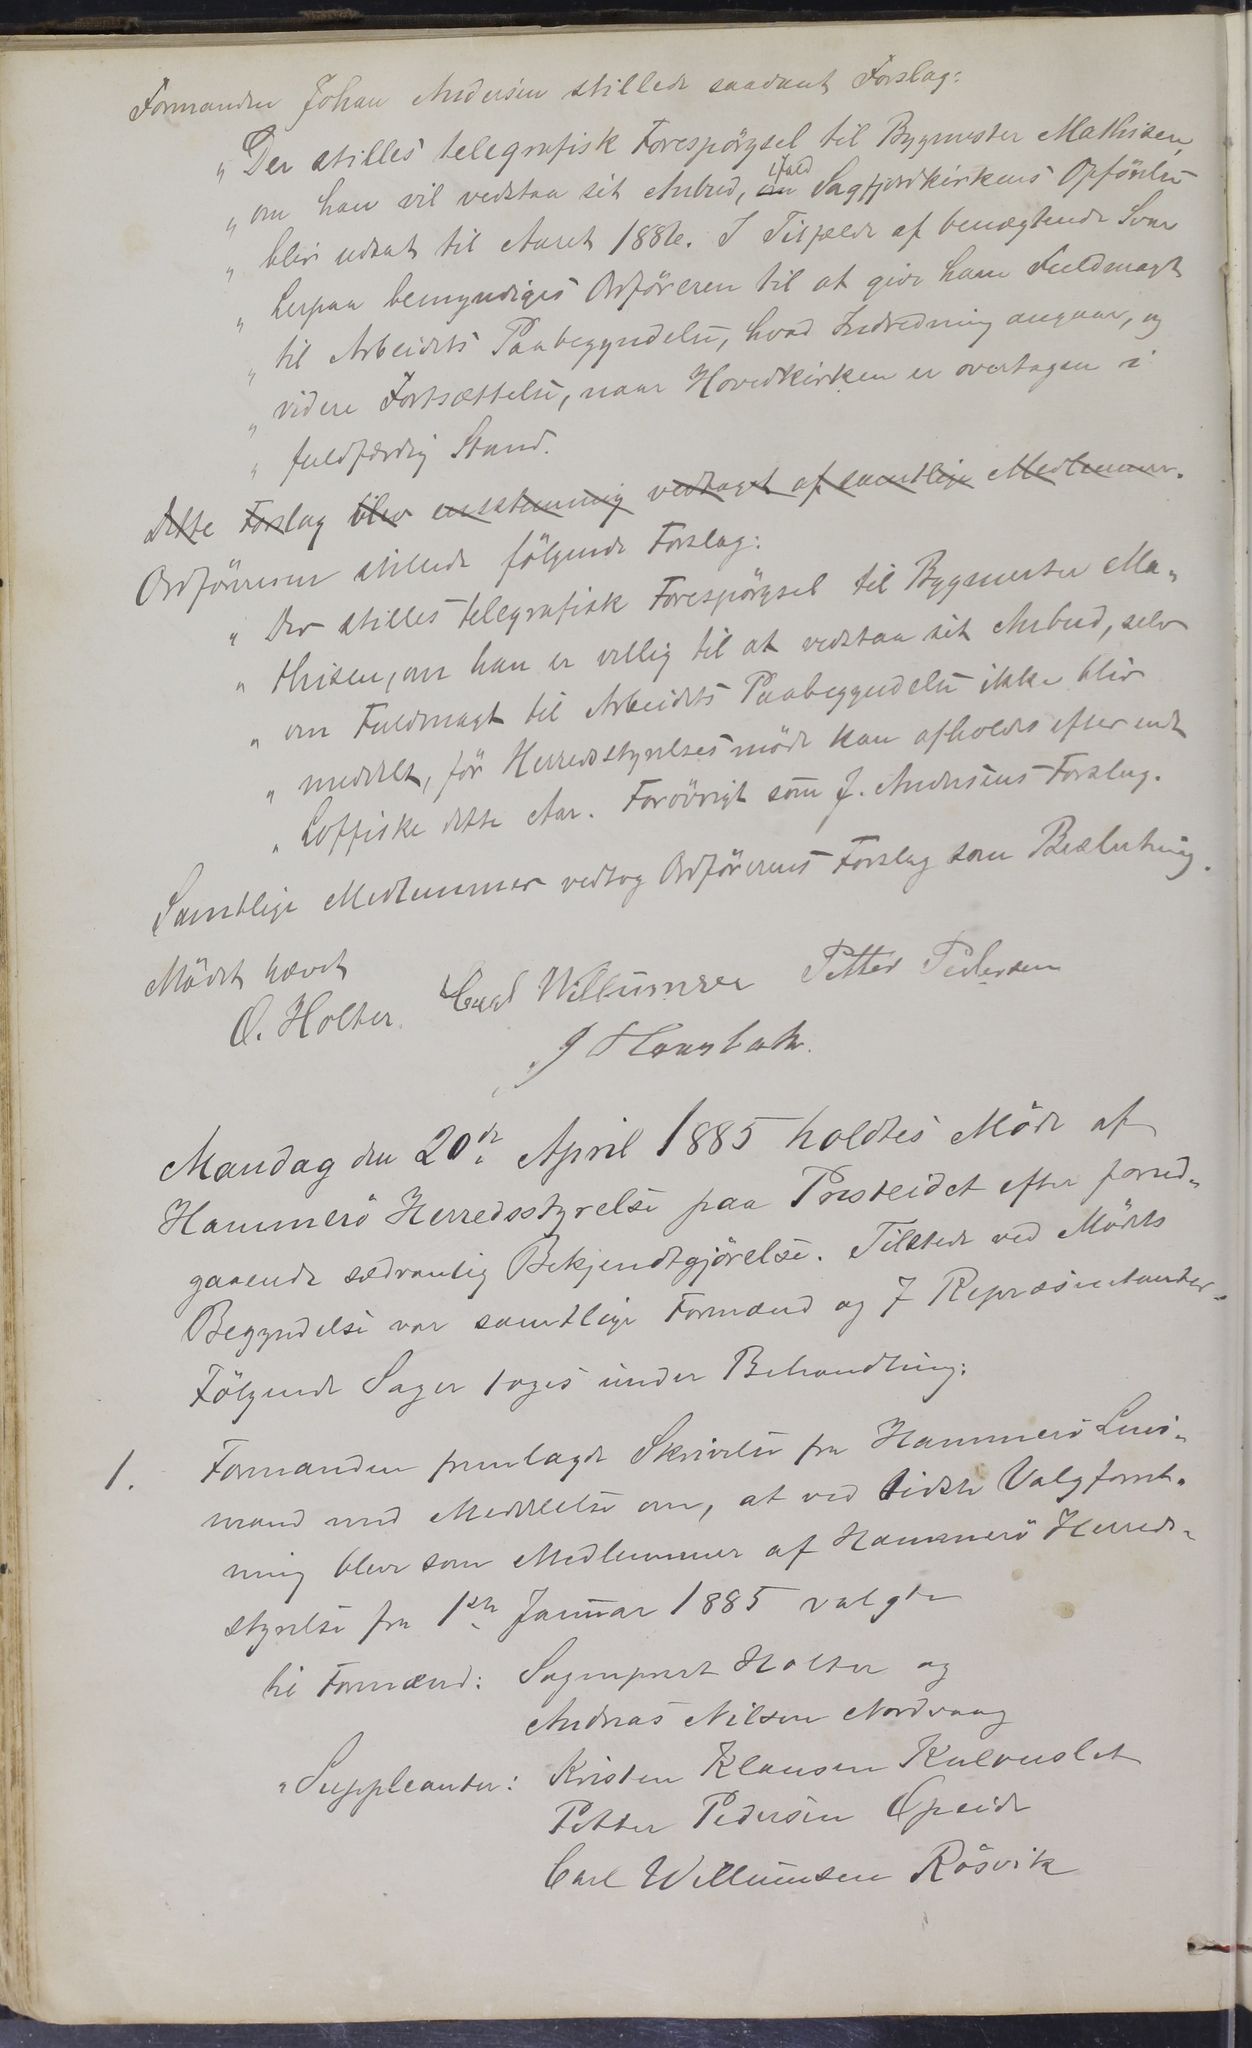 Formanden Johan Andersen stillede saadant Forslag:
„Der stilles telegrafisk Forespörgsel til Bygmester Mathisen,
„om han vil vedstaa sit Anbud, om ifald Sagfjordkirkens Opförelse
„blir udsat til Aaret 1886. I Tilfælde af benægtende Svar
„herpaa bemyndiges Ordföreren til at give ham Fuldmagt
„til Arbeidets Paabegyndelse, hvad Indredning angaar, og
„videre Fortsættelse, naar Hovedkirken er overtagen i
„fuldfærdig Stand.
Dette Forslag blev enstemmig vedtaget af samtlige Medlemmer.
Ordföreren stillede fölgende Forslag:
„Der stilles telegrafisk Forespörgsel til Bygmester Ma-
„thisen, om han er villig til at vedstaa sit Anbud, selv
„om Fuldmagt til Arbeidets Paabegyndelse ikke blir
„meddelt, för Herredsstyrelsesmöde kan afholdes efter endt
„Loffiske dette Aar. Forövrigt som J. Andersens Forslag.
Samtlige Medlemmer vedtog Ordförerens Forslag som Beslutning.
Mödet hævet
O. Holter. Carl Willumsen Petter Pedersen
J Haugbakk.
Mandag den 20de April 1885 holdtes Möde af
Hammerö Herredsstyrelse paa Presteidet efter forud-
gaaende sædvanlig Bekjendtgjörelse. Tilstede ved Mödets
Begyndelse var samtlige Formænd og 7 Repræsentanter.
Fölgende Sager toges under Behandling:
1. Formanden fremlagde Skrivelse fra Hammerö Lens-
mand med Meddelelse om, at ved sidste Valgforret-
ning blev som Medlemmer af Hammerö Herreds-
styrelse fra 1ste Januar 1885 valgte
til Formænd: Sogneprest Holter og
Andreas Nilsen Nordvaag
„Suppleanter: Kristen Klausen
Petter Pedersen Opeide
Carl Willumsen Rösvik